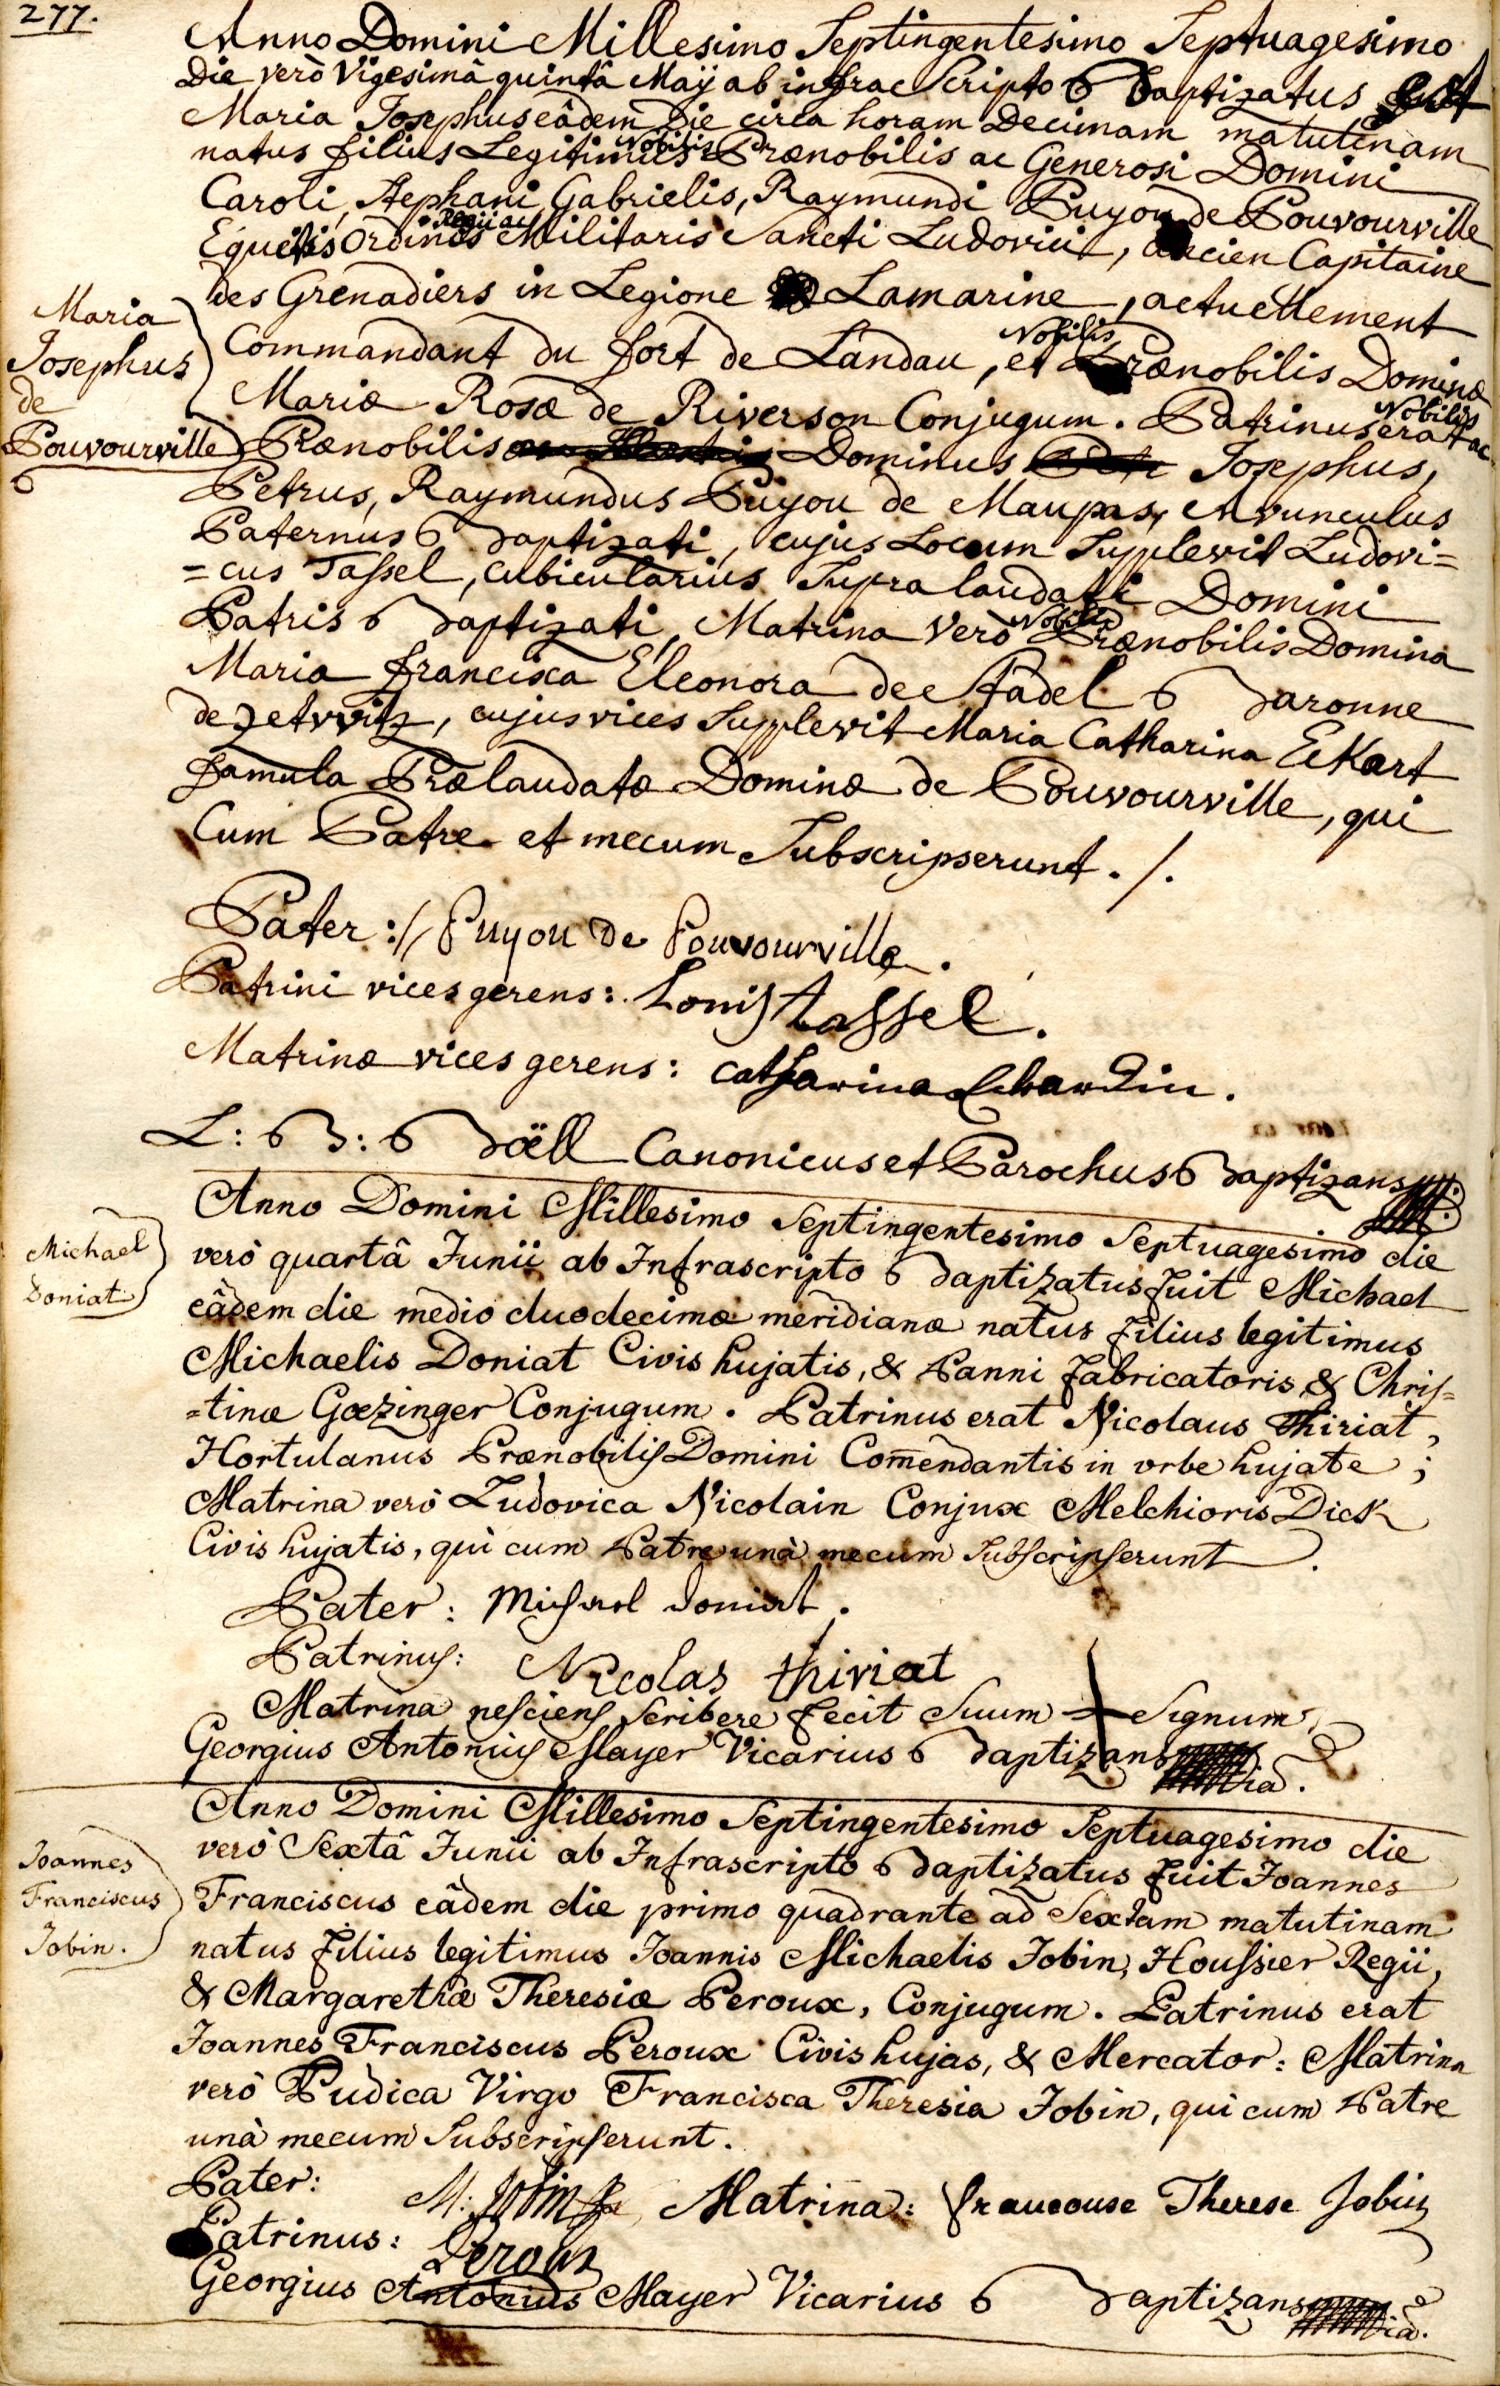 277.
Anno Domini Millesimo Septingentesimo Septuagesimo
Die verò Vigesimâ quintâ Maÿ ab infrac Scripto Baptizatus fuit
Maria Josephus eâdem Die circa horam Decimam matutinam
natus filius Legitimus Nobilis Prænobilis ac Generosi Domini
Caroli, Stephani, Gabrielis, Raymundi Puyou de Pouvourville
Equitis Ordinis Regii ac Militaris Sancti Ludovici, ancien Capitaine
des Grenadiers in Legione Lamarine, actuellement
Commandant du fort de Landau, et Nobilis Prænobilis Dominæ
Mariæ Rosæ de Riverson Conjugum. Patrinus erat Nobilis ac
Prænobilis Dominus Josephus,
Petrus, Raymundus Puyou de Maupas, Avunculus
Paternus Baptizati, cujus Locum Supplevit Ludovi=
=cus Tassel, cubicularius Supra laudati Domini
Patris Baptizati, Matrina Verò Nobilis Prænobilis Domina
Maria francisca Eleonora de Stadel Baronne
de Zetvvitz, cujus vices Supplevit Maria Catharina Eckart
famula Prælaudatæ Dominæ de Pouvourville, qui
Cum Patre et mecum Subscripserunt ./.
Maria
Josephus
de
Pouvourville
Pater :// Puyou de Pouvourville.
Patrini vices gerens: Louis tassel.
Matrinæ vices gerens: catharina Eckardin.
L: B: Bäll Canonicus et Parochus Baptizans
Michael
Doniat
Anno Domini Millesimo Septingentesimo Septuagesimo die
verò quartâ Junii ab Infrascripto Baptizatus fuit Michael
eâdem die medio duodecimæ meridianæ natus filius legitimus
Michaelis Doniat Civis hujatis, & Panni fabricatoris & Chris=
=tinæ Gœzinger Conjugum. Patrinus erat Nicolaus Thiriat,
Hortulanus Prænobilis Domini Com̄endantis in vrbe hujate;
Matrina verò Ludovica Nicolain Conjux Melchioris Dick
Civis hujatis, qui cum Patre unà mecum Subscripserunt.
Pater: Michael Doniat.
Patrinus: Nicolas thiriat
Matrina nesciens Scribere fecit Suum + Signum
Georgius Antonius Mayer Vicarius Baptizans
Joannes
Franciscus
Jobin.
Anno Domini Millesimo Septingentesimo Septuagesimo die
verò Sextâ Junii ab Infrascripto Baptizatus fuit Joannes
Franciscus eâdem die primo quadrante ad Sextam matutinam
natus filius legitimus Joannis Michaelis Jobin, Houssier Regii,
& Margarethæ Theresiæ Peroux, Conjugum. Patrinus erat
Joannes Franciscus Peroux Civis hujas, & Mercator: Matrina
verò Pudica Virgo Francisca Theresia Jobin, qui cum Patre
unà mecum Subscripserunt.
Pater: M: Jobin Matrina: francouse Therese Jobin
Patrinus: Peroux
Georgius Antonius Mayer Vicarius Baptizans